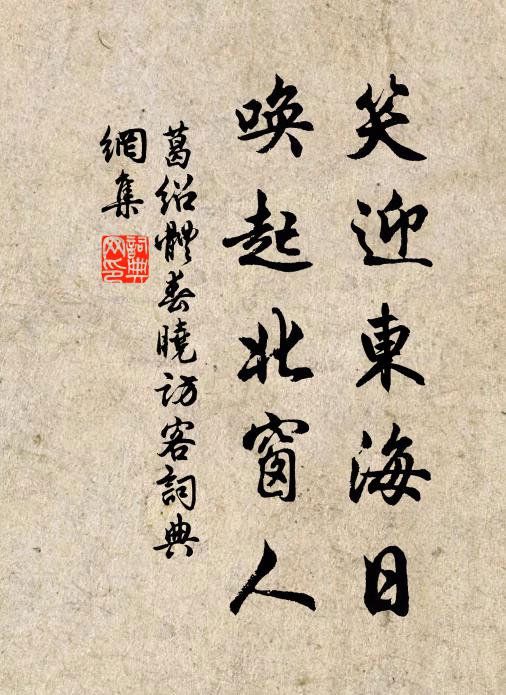 笑迎東海日
喚起北窗人
葛紹體春曉訪客詞典
網集
詞典網印